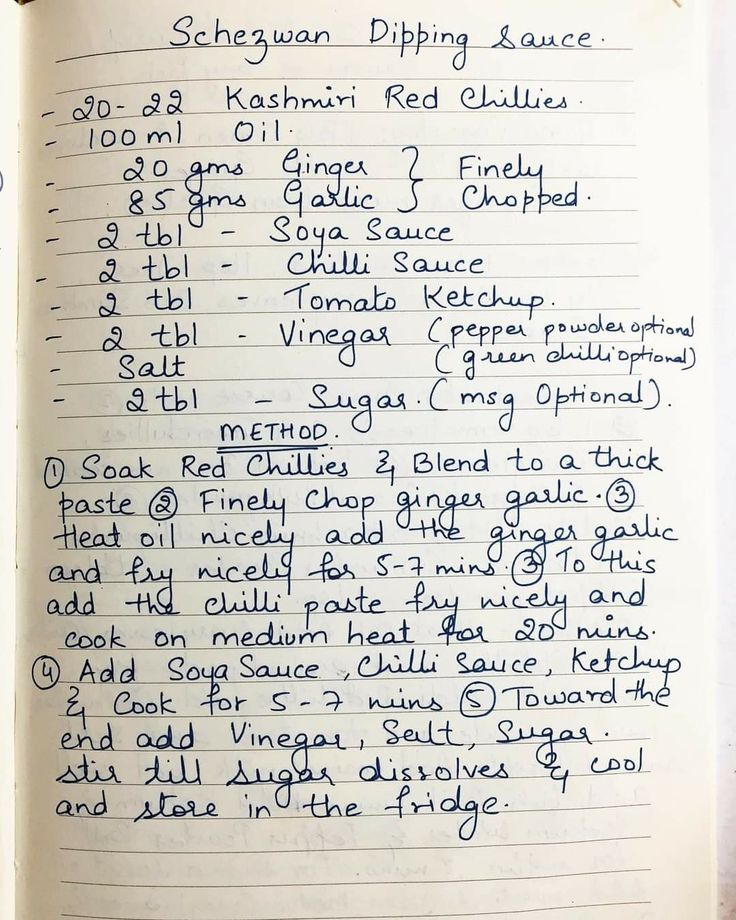 Schezwan Dipping Sauce.
- 20-22 Kashmiri Red Chillies.
- 100ml Oil.
- 20 gms Ginger } Finely
- 85 gms Garlic } Chopped.
- 2 tbl - Soya Sauce
- 2 tbl - Chilli Sauce
- 2 tbl - Tomato Ketchup.
- 2 tbl - Vinegar (pepper powder optional
- Salt (green chilli optional)
- 2 tbl - Sugar. (msg Optional).
METHOD.
① Soak Red Chillies & Blend to a thick
paste ② Finely Chop ginger garlic. ③
Heat oil nicely add the ginger garlic
and fry nicely for 5-7 mins. ③ To this
add the chilli paste fry nicely and
cook on medium heat for 20 mins.
④ Add Soya Sauce, Chilli Sauce, Ketchup
& Cook for 5-7 mins ⑤ Toward the
end add Vinegar, Salt, Sugar.
stir till sugar dissolves & cool
and store in the fridge.